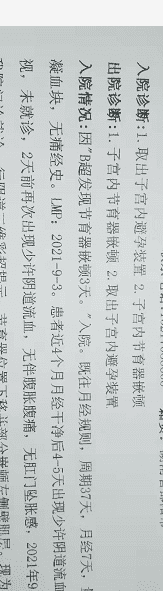 入院诊断:1. 取出子宫内避孕装置 2. 子宫内节育器嵌顿
出院诊断:1. 子宫内节育器嵌顿 2. 取出子宫内避孕装置
入院情况:因"B超发现节育器嵌顿3天。"入院。既往月经规则，周期37天，月经7天，
凝血块，无痛经史。LMP：2021-9-3。患者近4个月月经干净后4-5天出现少许阴道流血
视，未就诊，2天前再次出现少许阴道流血，无伴腹胀腹痛，无肛门坠胀感，2021年9
节育器位置下移并部分嵌顿左侧壁肌层。现为